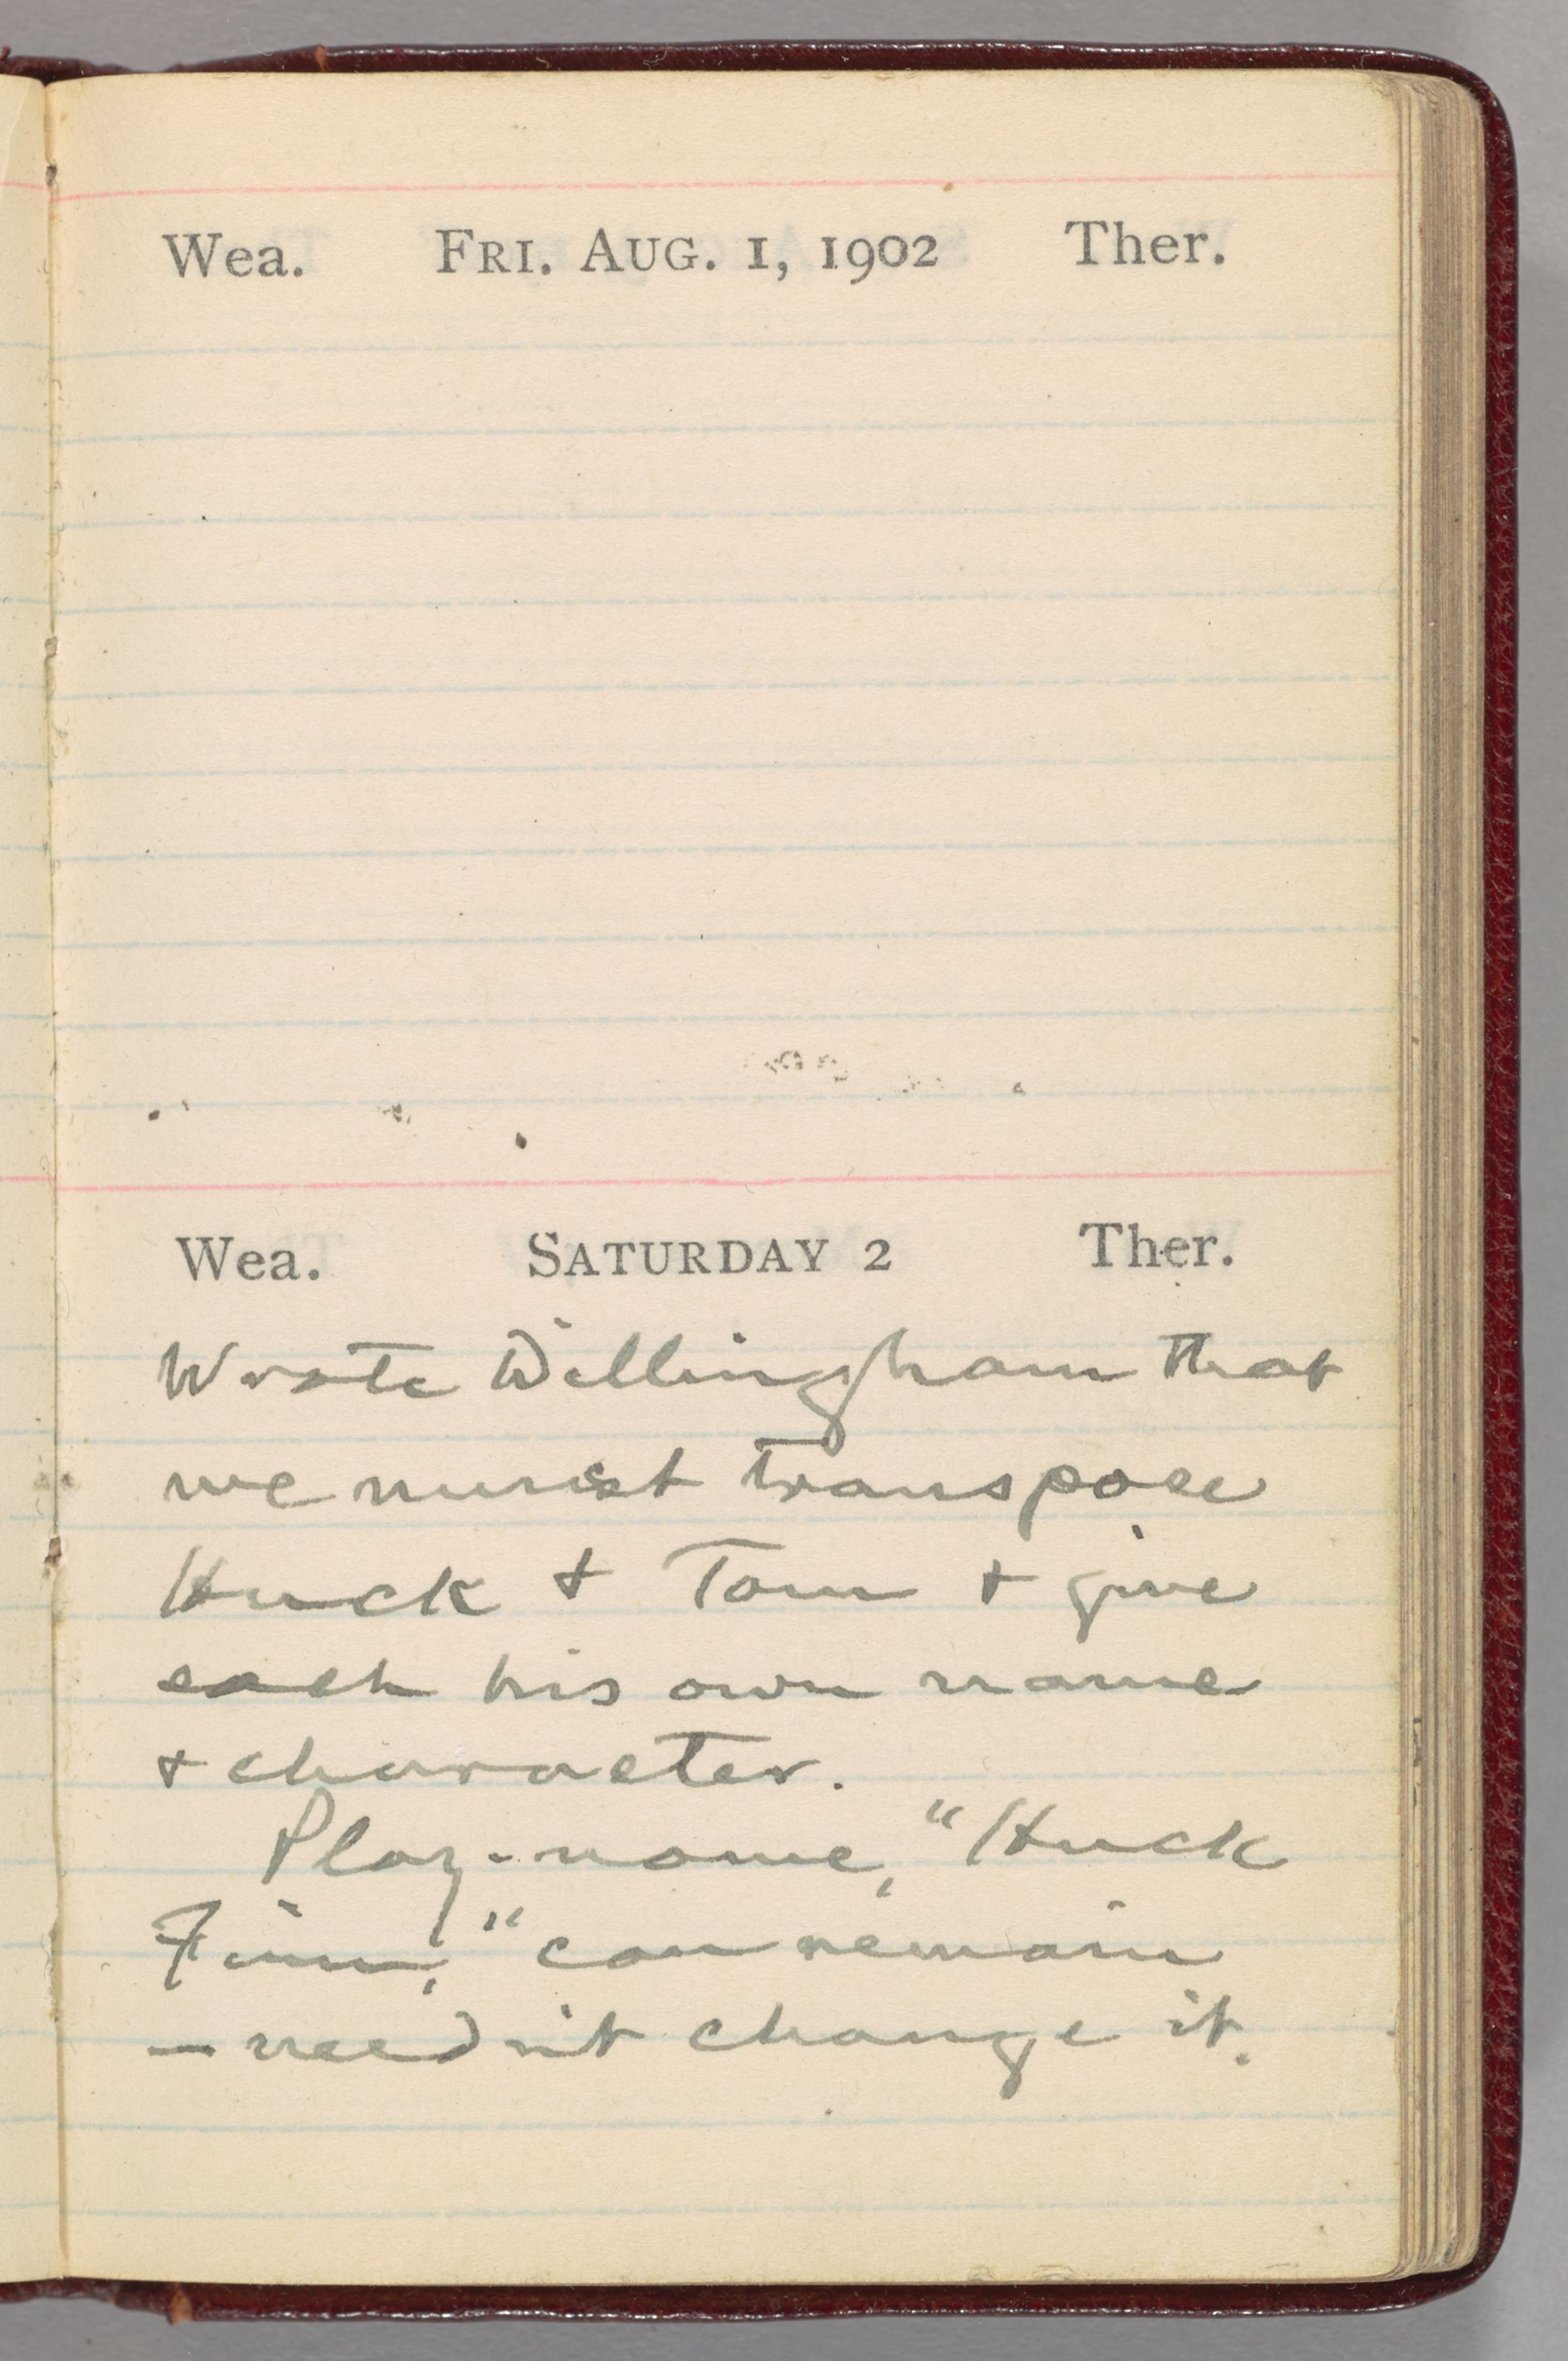 Wea. FRI. AUG. 1, 1902 Ther.
Wea. SATURDAY 2 Ther.
Wrote Dillingham that
we must transpose
Huck & Tom & give
each his own name
& character.
Play-name, "Huck
Finn," can remain
— needn't change it.